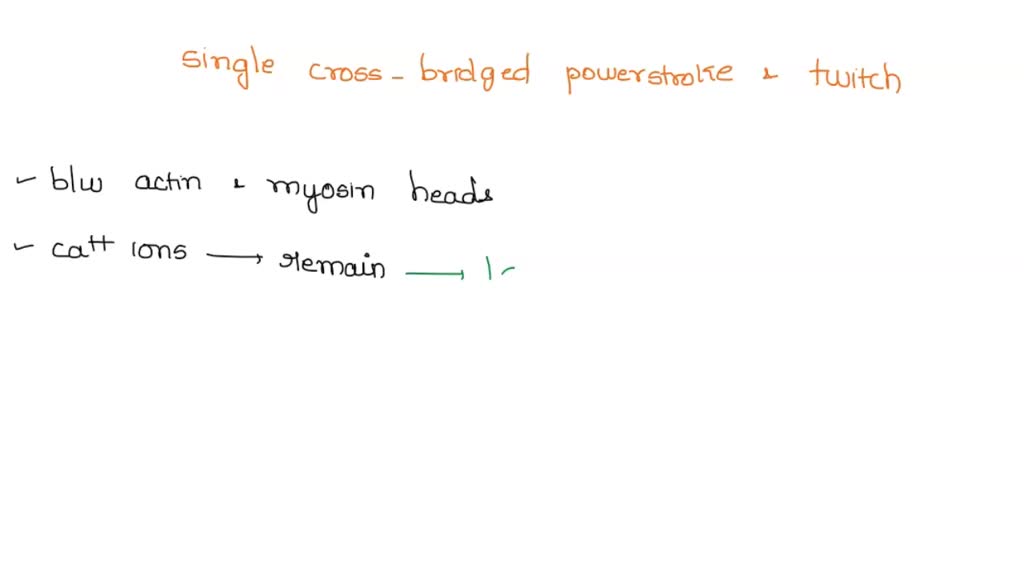 single cross-bridged powerstroke & twitch
✓ b/w actin & myosin heads
✓ ca++ ions → remain →